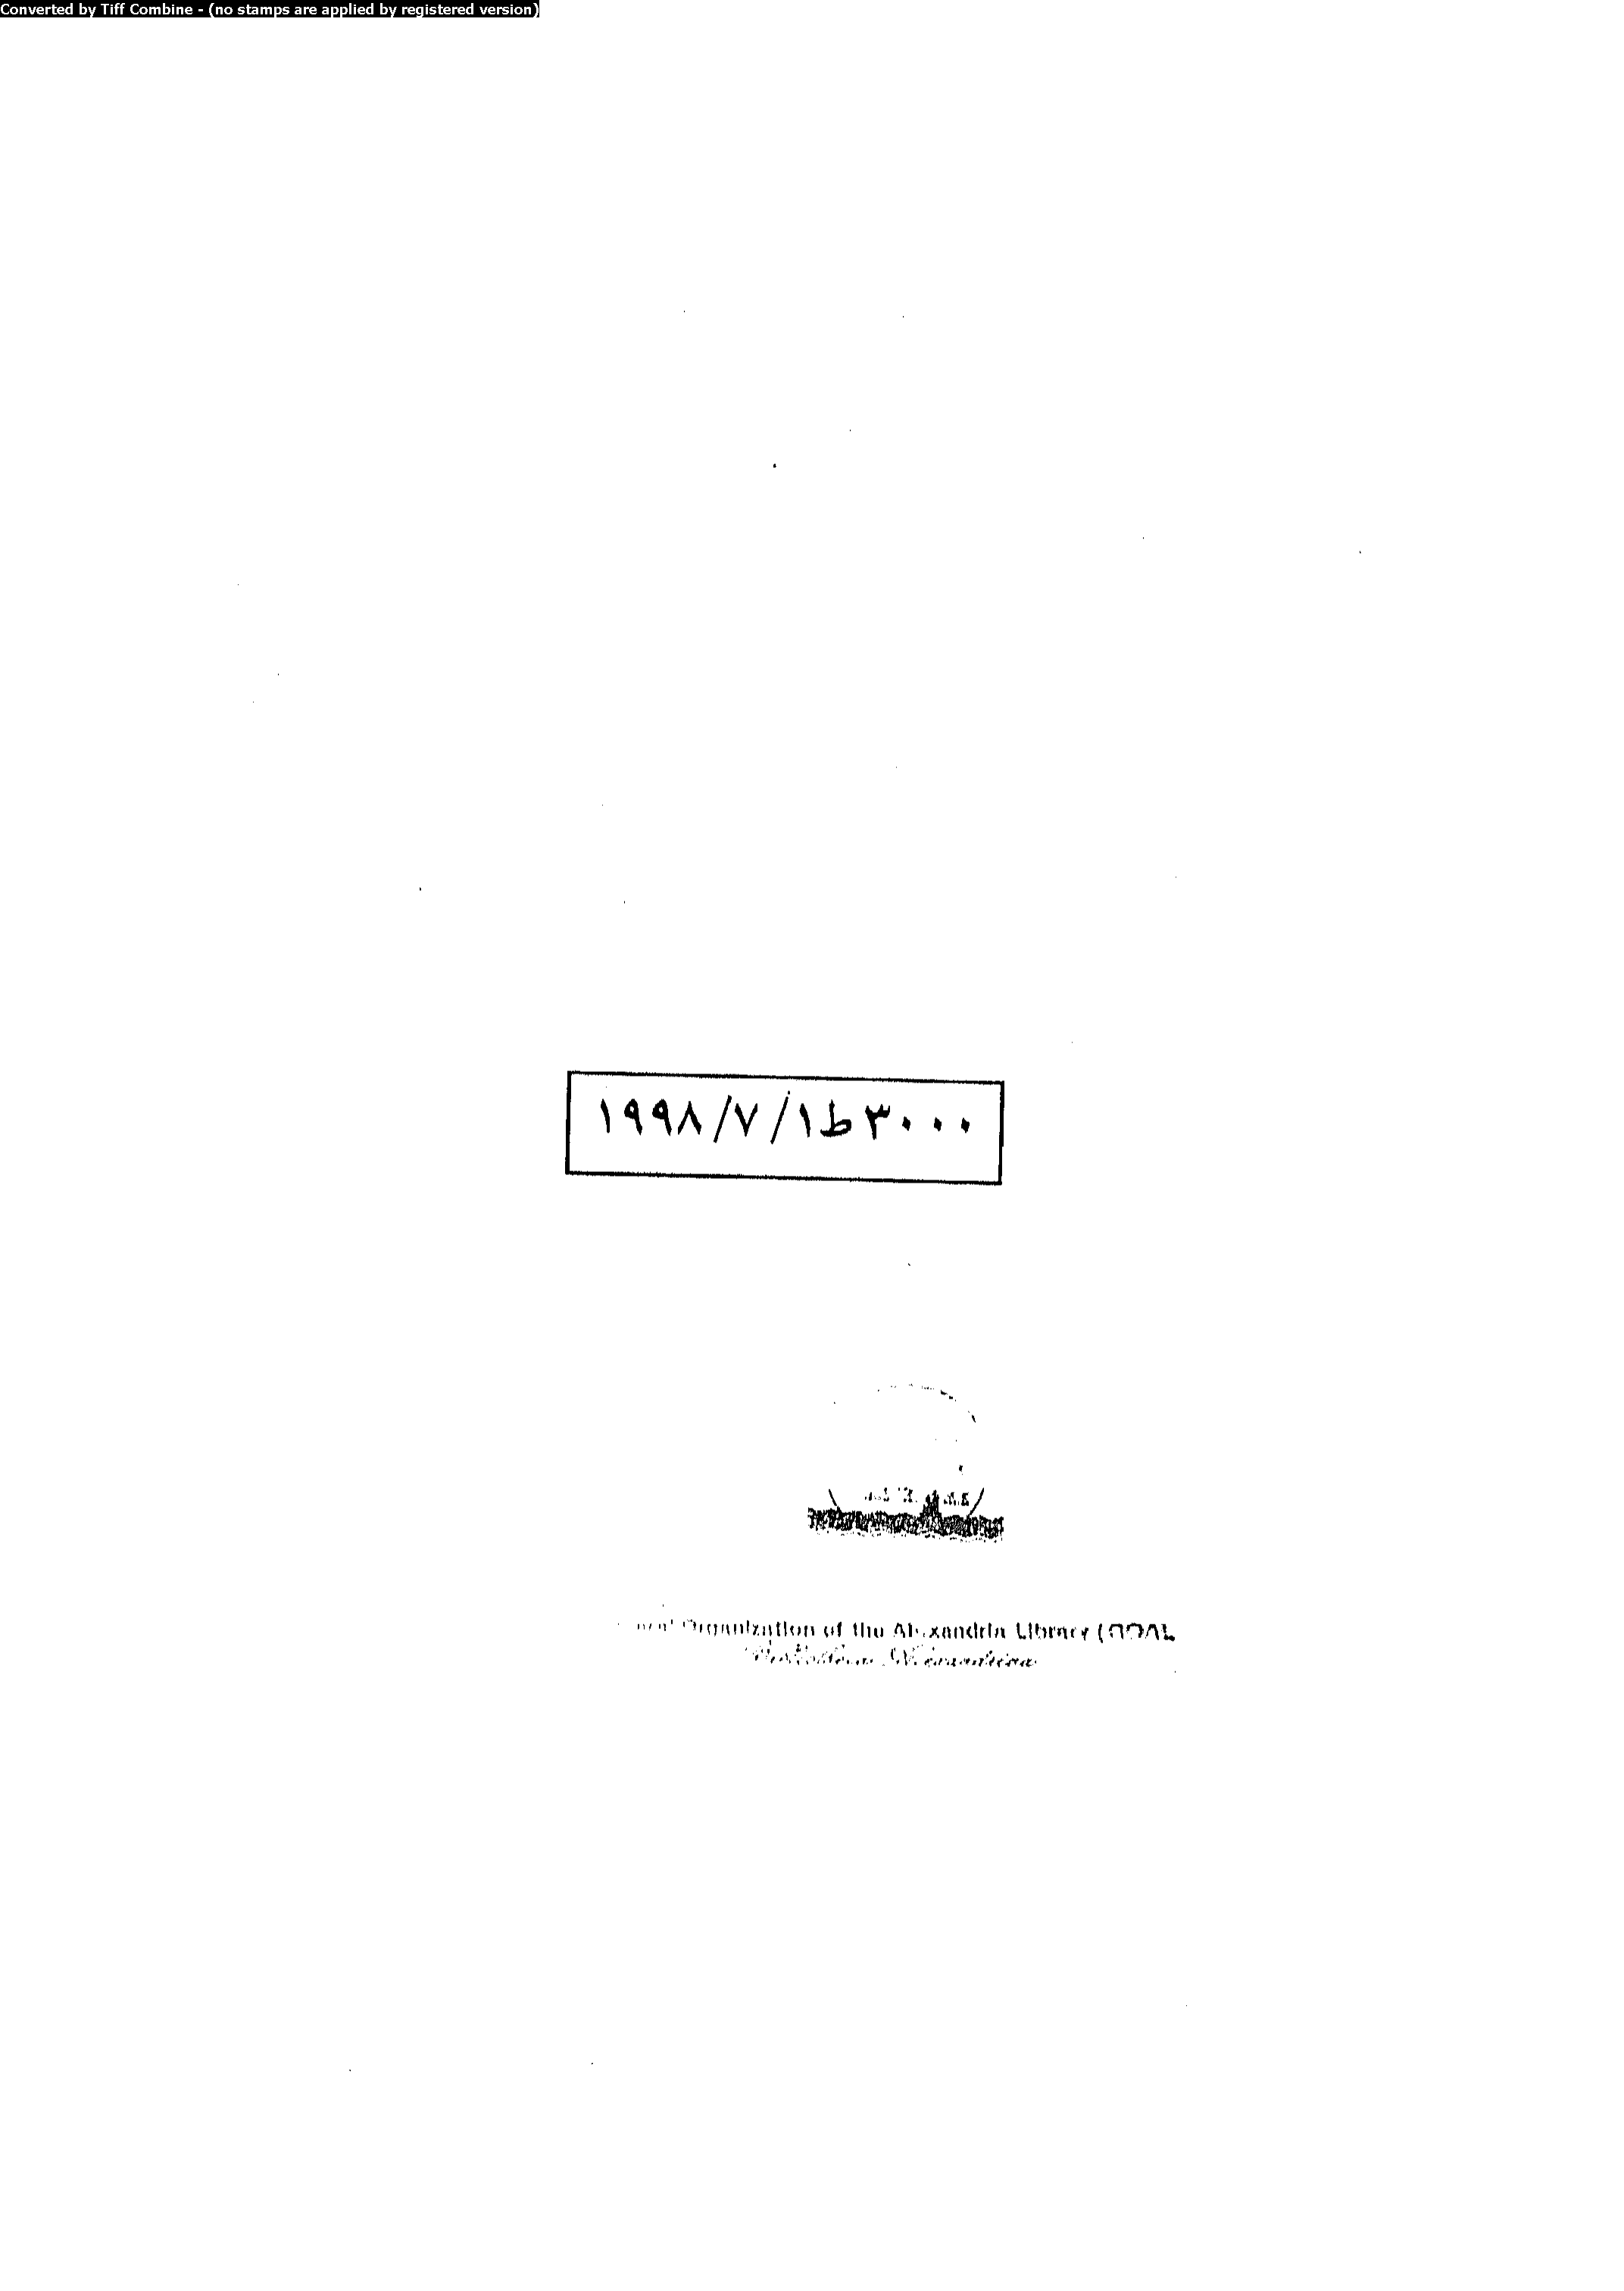 Converted by Tiff Combine - (no stamps are applied by registered version)
١٩٩٨/٧/١ط٣٠٠٠
Organization of the Alexandria Library (GOAL